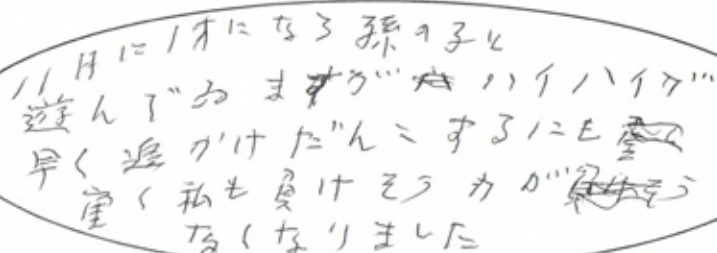 11月に1才になる孫の子と
遊んでゐますが ハイハイが
早く追かけだんこするにも
く私も負けそう力が
なくなりました